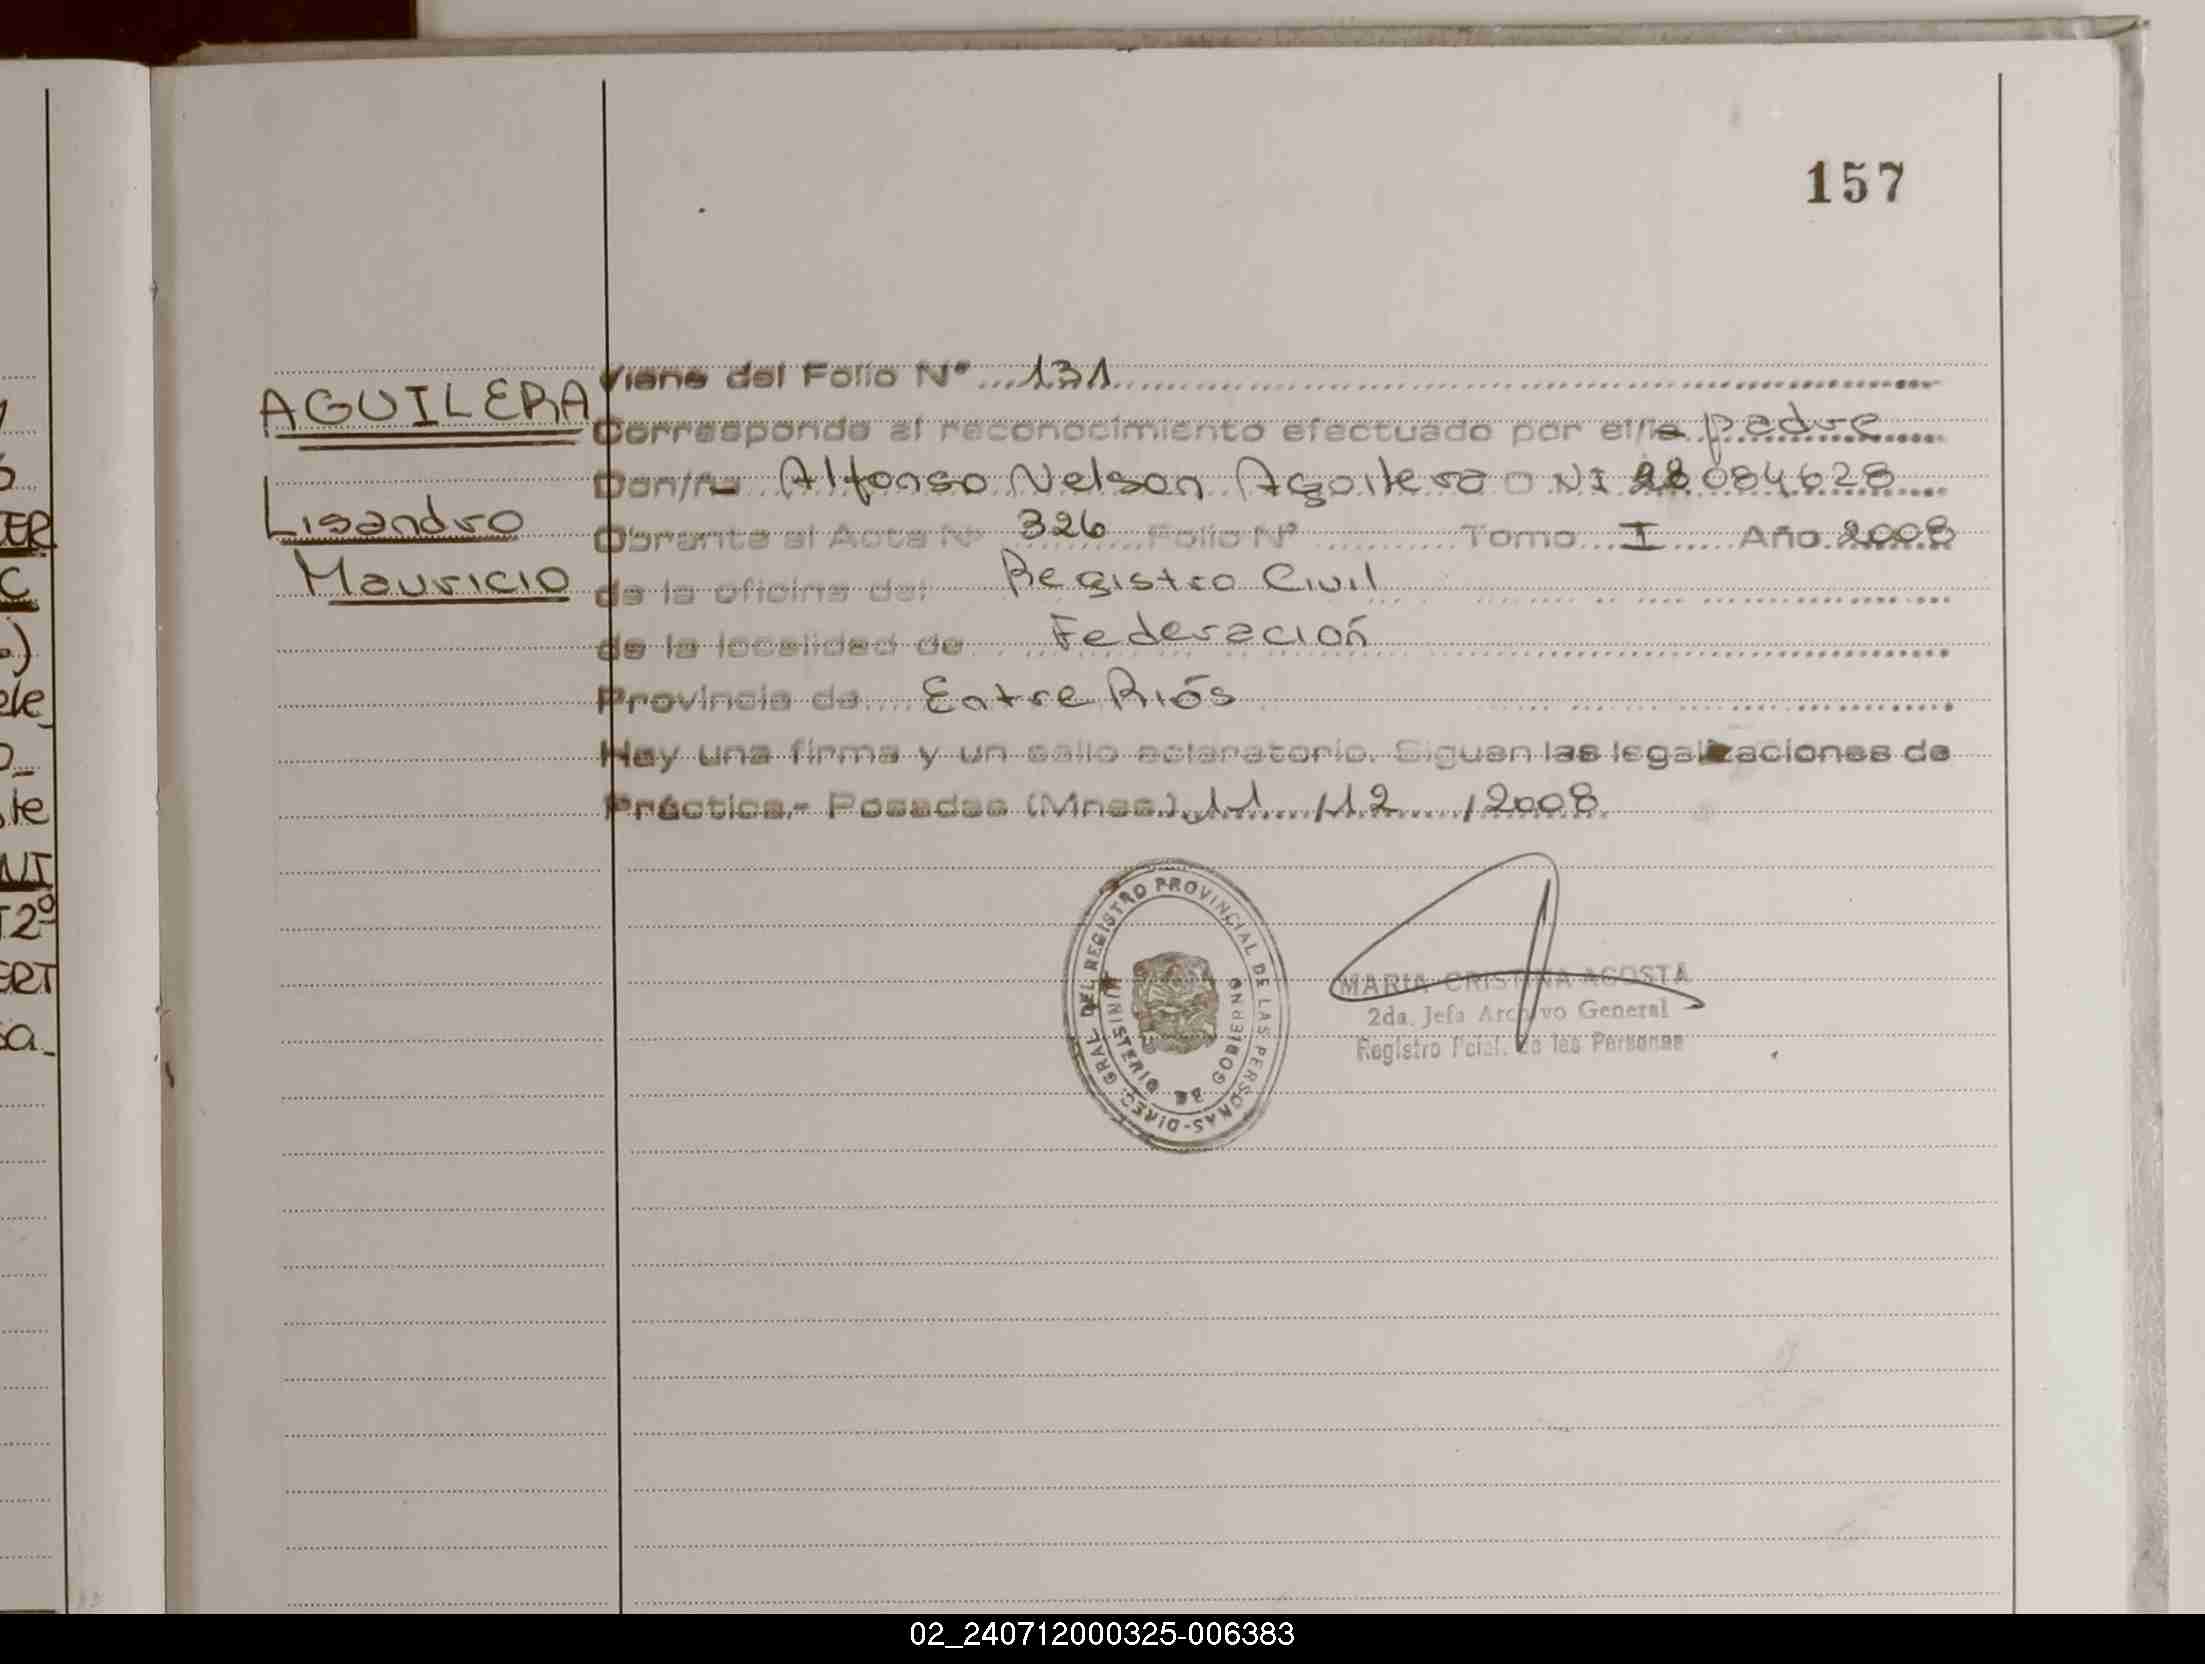 157
AGUILERA
Lisandro
Mauricio
Viene del Folio Nº 131
Corresponde al reconocimiento efectuado por el/la padre
Don/ña Alfonso Nelson Aguilera DNI 28084628
Obrante al Acta Nº 326 Folio Nº Tomo I Año 2008
de la oficina del Registro Civil
de la localidad de Federación
Provincia de Entre Riós
Hay una firma y un sello aclaratorio. Siguen las legalizaciones de
Práctica.- Posadas (Mnes.) 11 /12 /2008
DIREC. GRAL. DEL REGISTRO PROVINCIAL DE LAS PERSONAS-
MINISTERIO DE GOBIERNO
MARIA CRISTINA AGOSTA
2da. Jefa Archivo General
Registro Pcial. de las Personas
1
TER
C
ele
te
NI
T2º
ERT
sa.
02_240712000325-006383